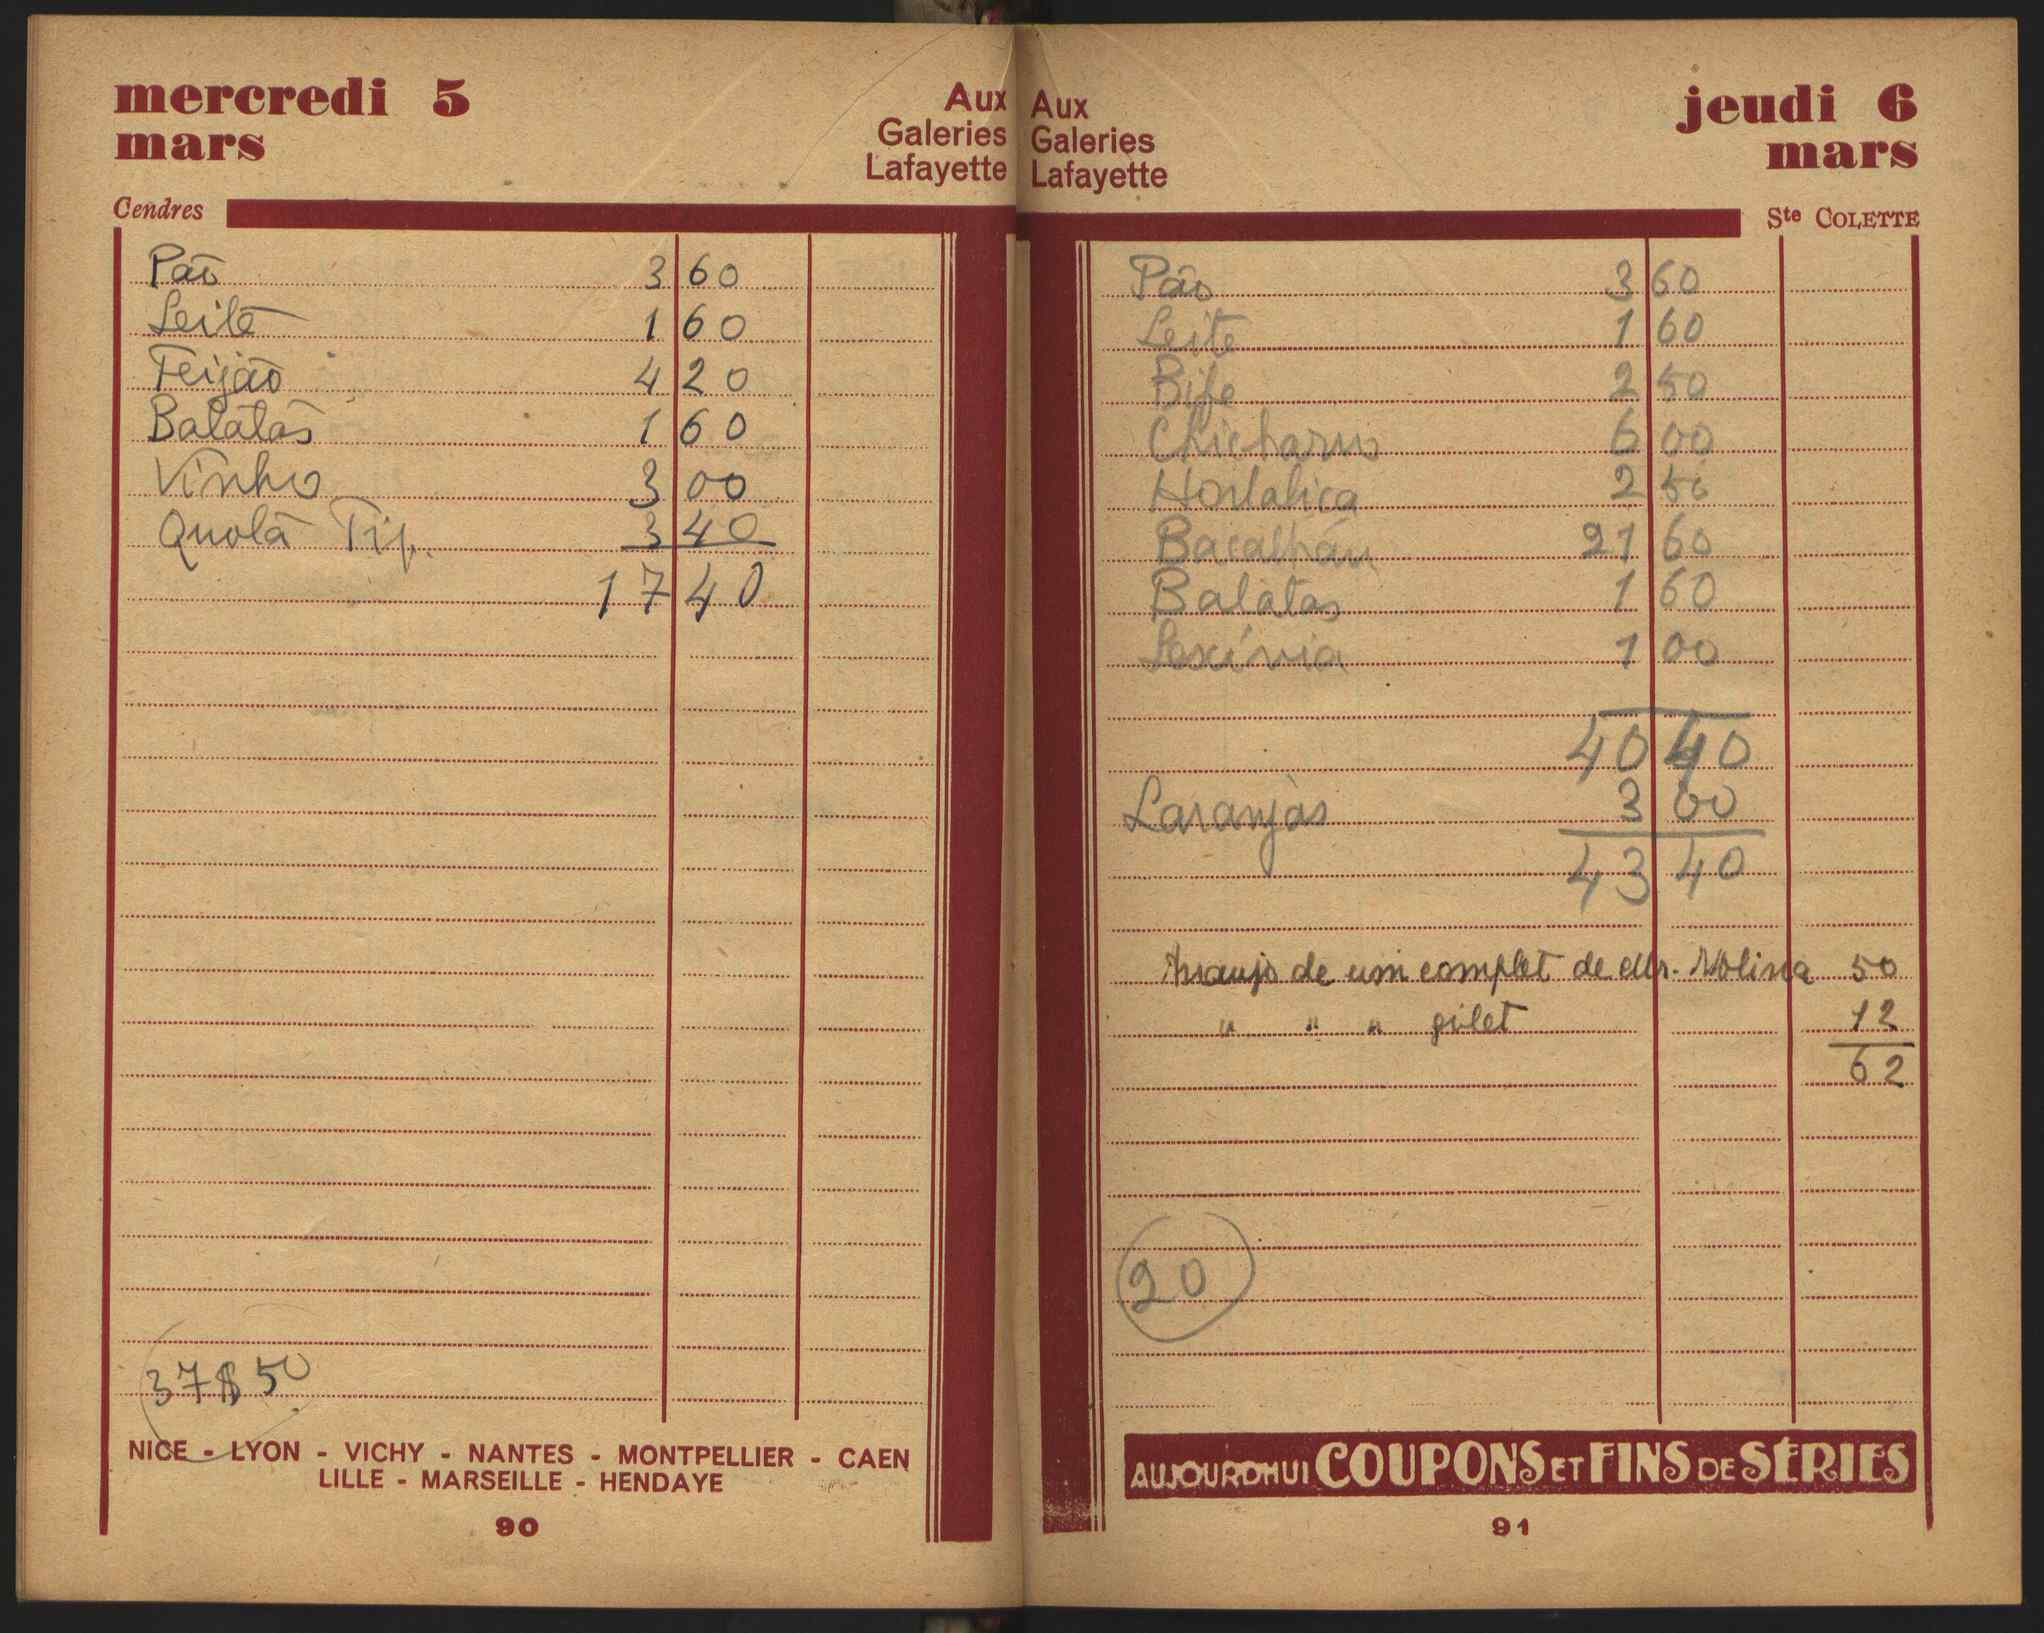 mercredi 5
mars
Aux
Galeries
Lafayette
Cendres
Pão 3 60
Leite 1 60
Feijão 4 20
Batatas 1 60
Vinho 3 00
Quota Tip. 3 40
17 40
37$50
NICE - LYON - VICHY - NANTES - MONTPELLIER - CAEN
LILLE - MARSEILLE - HENDAYE
90
Aux
Galeries
Lafayette
jeudi 6
mars
Ste COLETTE
Pão 3 60
Leite 1 60
Bife 2 50
Chicharro 6 00
Hortaliça 2 50
Bacalhau 21 60
Batatas 1 60
Lexívia 1 00
40 40
Laranjas 3 00
43 40
Arranjo de um complet de Mr. Molina 50
" " " gilet 12
62
20
AUJOURD'HUI COUPONS ET FINS DE SÉRIES
91